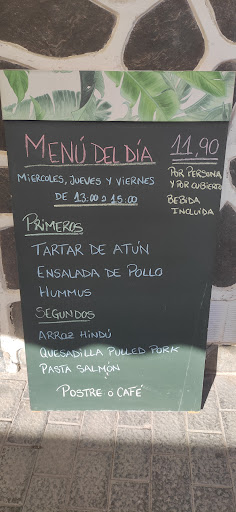 MENÚ DEL DÍA
11,90
MIERCOLES, JUEVES Y VIERNES
DE 13:00 a 15:00
POR PERSONA
Y POR CUBIERTO
BEBIDA
INCLUIDA
PRIMEROS
TARTAR DE ATÚN
ENSALADA DE POLLO
HUMMUS
SEGUNDOS
ARROZ HINDÚ
QUESADILLA PULLED PORK
PASTA SALMÓN
POSTRE O CAFÉ